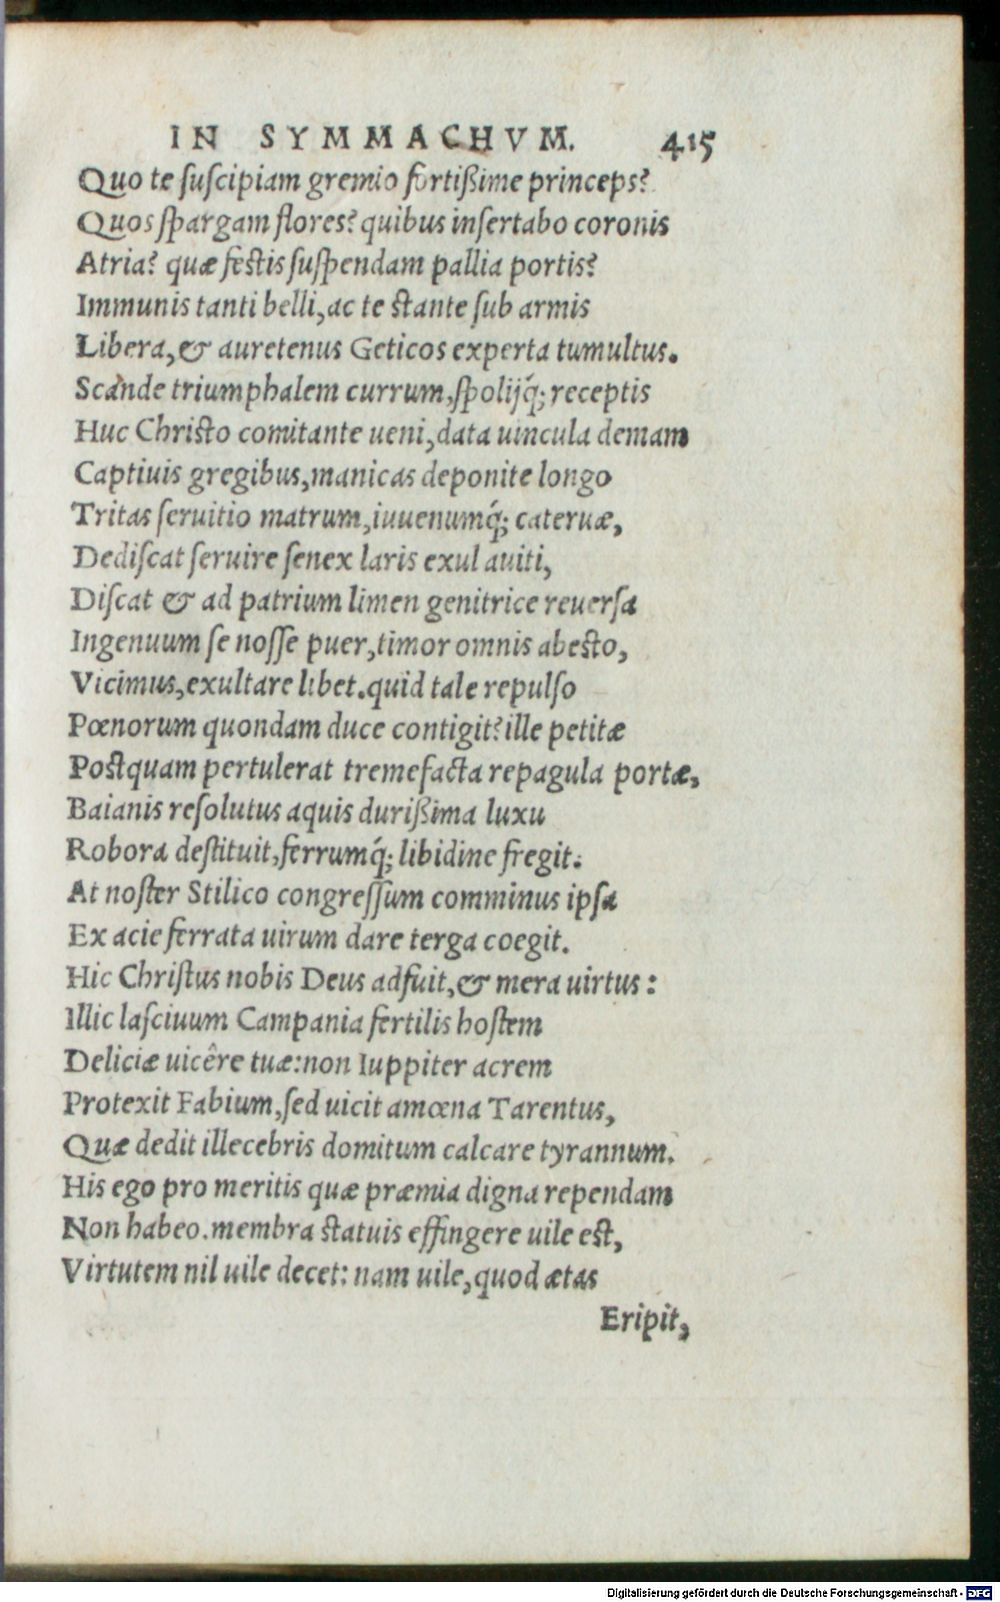 IN SYMMACHVM. 415
Quo te ſuſcipiam gremio fortißime princeps?
Quos ſpargam flores? quibus inſertabo coronis
Atria? quæ feſtis ſuſpendam pallia portis?
Immunis tanti belli,ac te ſtante ſub armis
Libera,& auretenus Geticos experta tumultus.
Scande triumphalem currum,ſpolijq́; receptis
Huc Chriſto comitante ueni,data uincula demam
Captiuis gregibus,manicas deponite longo
Tritas ſeruitio matrum,iuuenumq́; cateruæ,
Dediſcat ſeruire ſenex laris exul auiti,
Diſcat & ad patrium limen genitrice reuerſa
Ingenuum ſe noſſe puer,timor omnis abeſto,
Vicimus,exultare libet.quid tale repulſo
Pœnorum quondam duce contigit?ille petitæ
Poſtquam pertulerat tremefacta repagula portæ,
Baianis reſolutus aquis durißima luxu
Robora deſtituit,ferrumq́; libidine fregit.
At noſter Stilico congreſſum comminus ipſa
Ex acie ferrata uirum dare terga coegit.
Hic Chriſtus nobis Deus adfuit,& mera uirtus:
Illic laſciuum Campania fertilis hoſtem
Deliciæ uicêre tuæ:non Iuppiter acrem
Protexit Fabium,ſed uicit amœna Tarentus,
Quæ dedit illecebris domitum calcare tyrannum.
His ego pro meritis quæ præmia digna rependam
Non habeo.membra ſtatuis effingere uile eſt,
Virtutem nil uile decet: nam uile,quod ætas
Eripit,
Digitalisierung gefördert durch die Deutsche Forschungsgemeinschaft - DFG